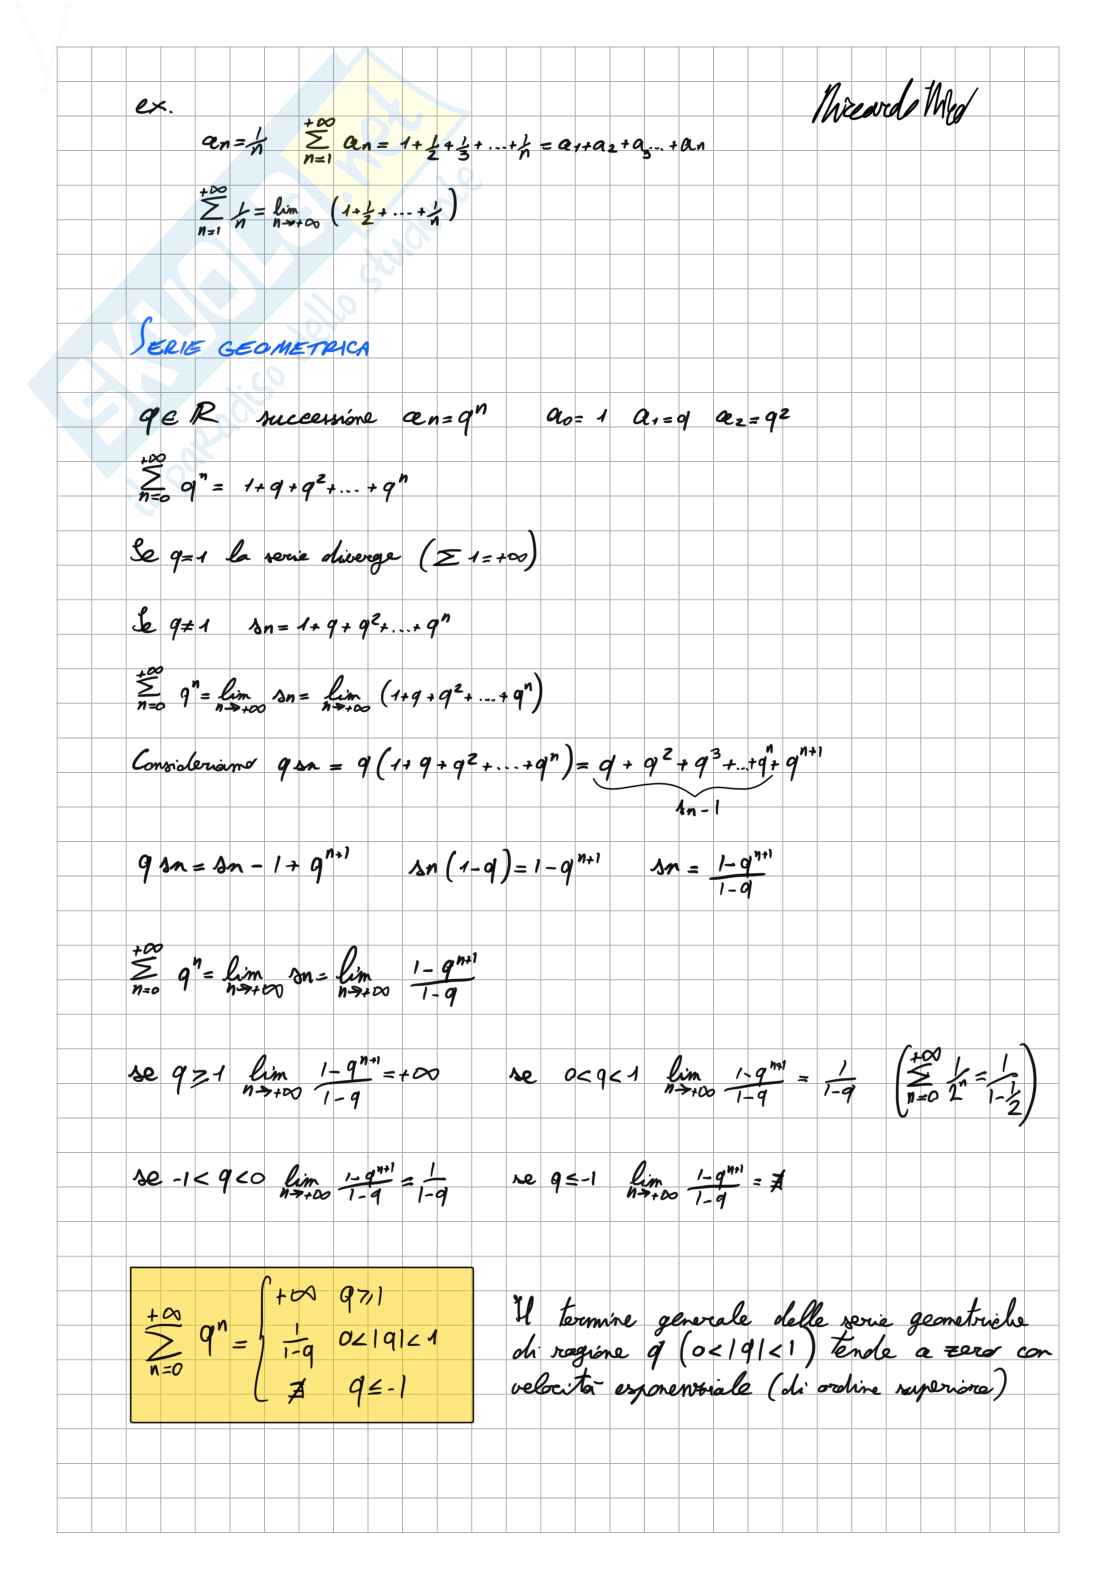 ex.
aₙ = 1/n   ∑_{n=1}^{+∞} aₙ = 1 + 1/2 + 1/3 + ... + 1/n = a₁ + a₂ + a₃ ... + aₙ
∑_{n=1}^{+∞} 1/n = lim_{n→+∞} (1 + 1/2 + ... + 1/n)
SKUOLA.net
il paradiso dello studente
SERIE GEOMETRICA
q ∈ ℝ successione aₙ = qⁿ   a₀ = 1   a₁ = q   a₂ = q²
∑_{n=0}^{+∞} qⁿ = 1 + q + q² + ... + qⁿ
Se q = 1 la serie diverge (∑ 1 = +∞)
Se q ≠ 1   sₙ = 1 + q + q² + ... + qⁿ
∑_{n=0}^{+∞} qⁿ = lim_{n→+∞} sₙ = lim_{n→+∞} (1 + q + q² + ... + qⁿ)
Consideriamo q sₙ = q (1 + q + q² + ... + qⁿ) = q + q² + q³ + ... + qⁿ + qⁿ⁺¹
sₙ - 1
q sₙ = sₙ - 1 + qⁿ⁺¹   sₙ (1 - q) = 1 - qⁿ⁺¹   sₙ = (1 - qⁿ⁺¹)/(1 - q)
∑_{n=0}^{+∞} qⁿ = lim_{n→+∞} sₙ = lim_{n→+∞} (1 - qⁿ⁺¹)/(1 - q)
se q ⩾ 1 lim_{n→+∞} (1 - qⁿ⁺¹)/(1 - q) = +∞   se 0 < q < 1 lim_{n→+∞} (1 - qⁿ⁺¹)/(1 - q) = 1/(1 - q)   (∑_{n=0}^{+∞} 1/2ⁿ = 1/(1 - 1/2))
se -1 < q < 0 lim_{n→+∞} (1 - qⁿ⁺¹)/(1 - q) = 1/(1 - q)   se q ≤ -1 lim_{n→+∞} (1 - qⁿ⁺¹)/(1 - q) = ∄
∑_{n=0}^{+∞} qⁿ = { +∞   q ⩾ 1
1/(1 - q)   0 < |q| < 1
∄   q ≤ -1
Il termine generale delle serie geometriche
di ragione q (0 < |q| < 1) tende a zero con
velocità esponenziale (di ordine superiore)